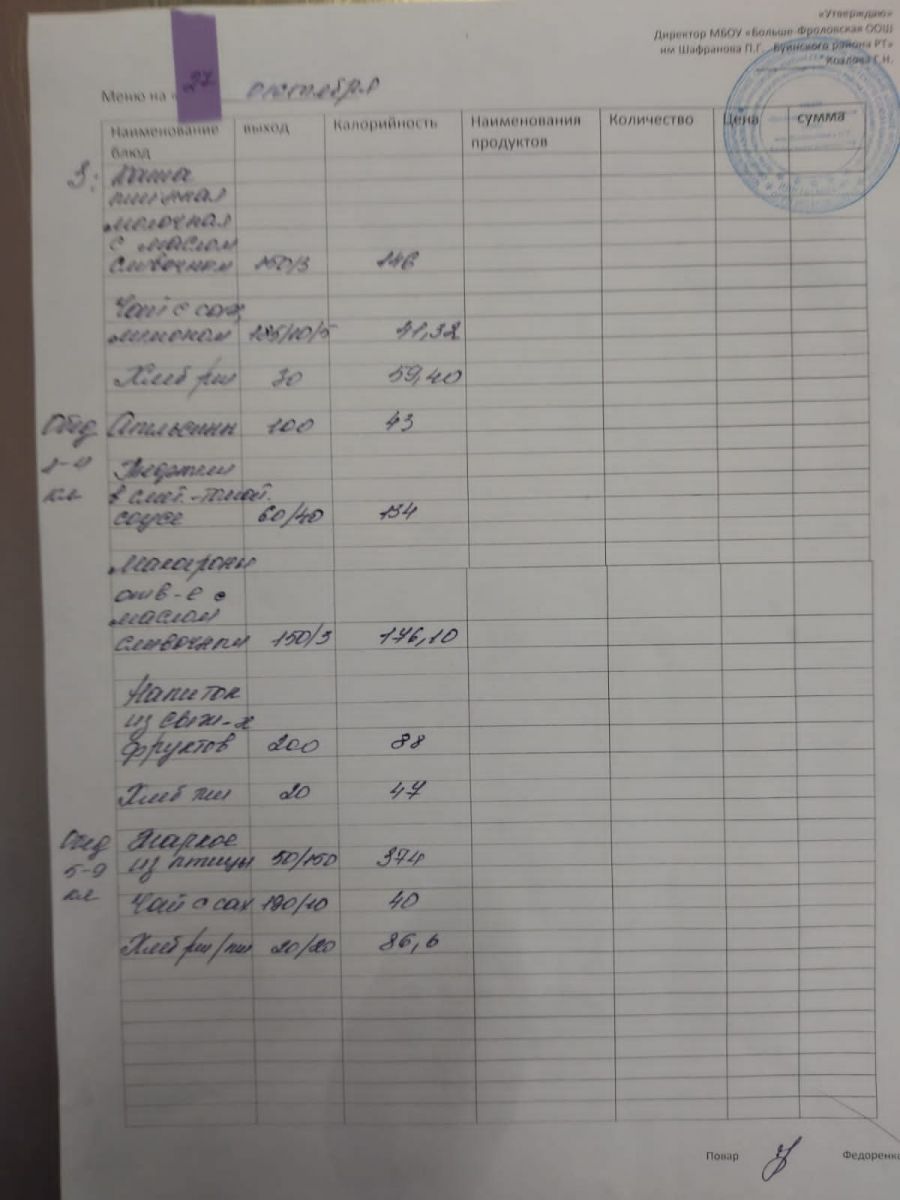 «Утверждаю»
Директор МБОУ «Больше-Фроловская ООШ
им Шафранова П.Г. Буинского района РТ»
Козлова Г.Н.
Меню на «27 октября
Наименование блюд выход Калорийность Наименования продуктов Количество Цена сумма
З: Каша
пшенная
молочная
с маслом
сливочным 150/3 146
Чай с сах,
лимоном 185/10/5 41,32
Хлеб рж 30 59,40
Обед Апельсины 100 43
1-4 Тефтели
кл в смет.-томат.
соусе 60/40 134
Макароны
отв-е с
маслом
сливочным 150/3 176,10
Напиток
из свеж-х
фруктов 200 88
Хлеб пш 20 47
Обед Жаркое
5-9 из птицы 50/150 374
кл
Чай с сах 190/10 40
Хлеб рж/пш 20/20 86,6
Повар Федоренко